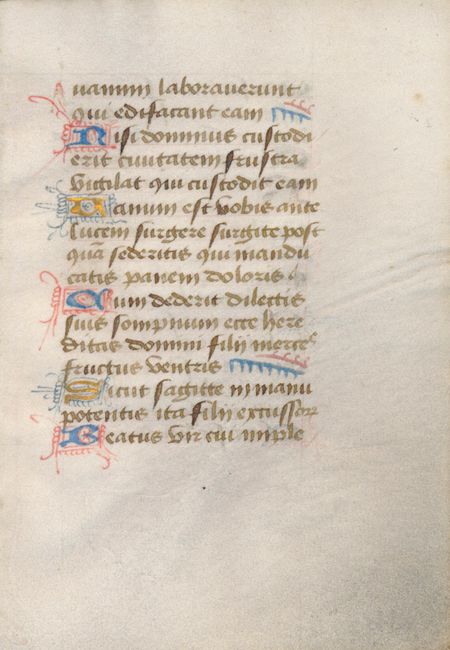 vanum laboraverunt
qui edificant eam
Nisi dominus custodi
erit civitatem frustra
vigilat qui custodit eam
Vanum est vobis ante
lucem surgere surgite post
quā sederitis qui mandu
catis panem doloris
Cum dederit dilectis
suis sompnum ecce here
ditas domini filii merces
fructus ventris
Sicut sagitte in manu
potentis ita filii excussorꝝ
Beatus vir cui imple